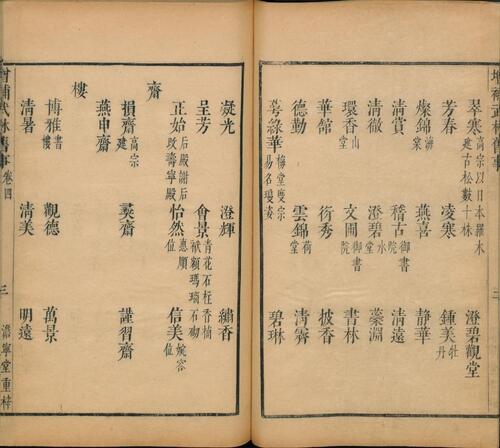 翠寒高宗以日本羅木建古松數十株
澄碧觀堂
芳春 凌寒 鍾美牡丹
燦錦海棠 燕喜 靜華
清賞 稽古御書院 清遠
清徹 澄碧水堂 蘂淵
環香山堂 文囿御書院 書林
華館 衍秀 披香
德勤 雲錦荷堂 清霽
萼綠華梅堂度宗易名瓊姿 碧琳
凝光 澄輝 繡香
呈芳 會景青花石柱香楠袱額瑪瑙石砌
正始后殿謝后改壽寧殿 怡然惠順位 信美婉容位
齋
損齋高宗建 燕齋 謹習齋
燕申齋
樓
博雅書樓 觀德 萬景
清暑 清美 明遠
增補武林舊事 卷四 三 澹寧堂重梓